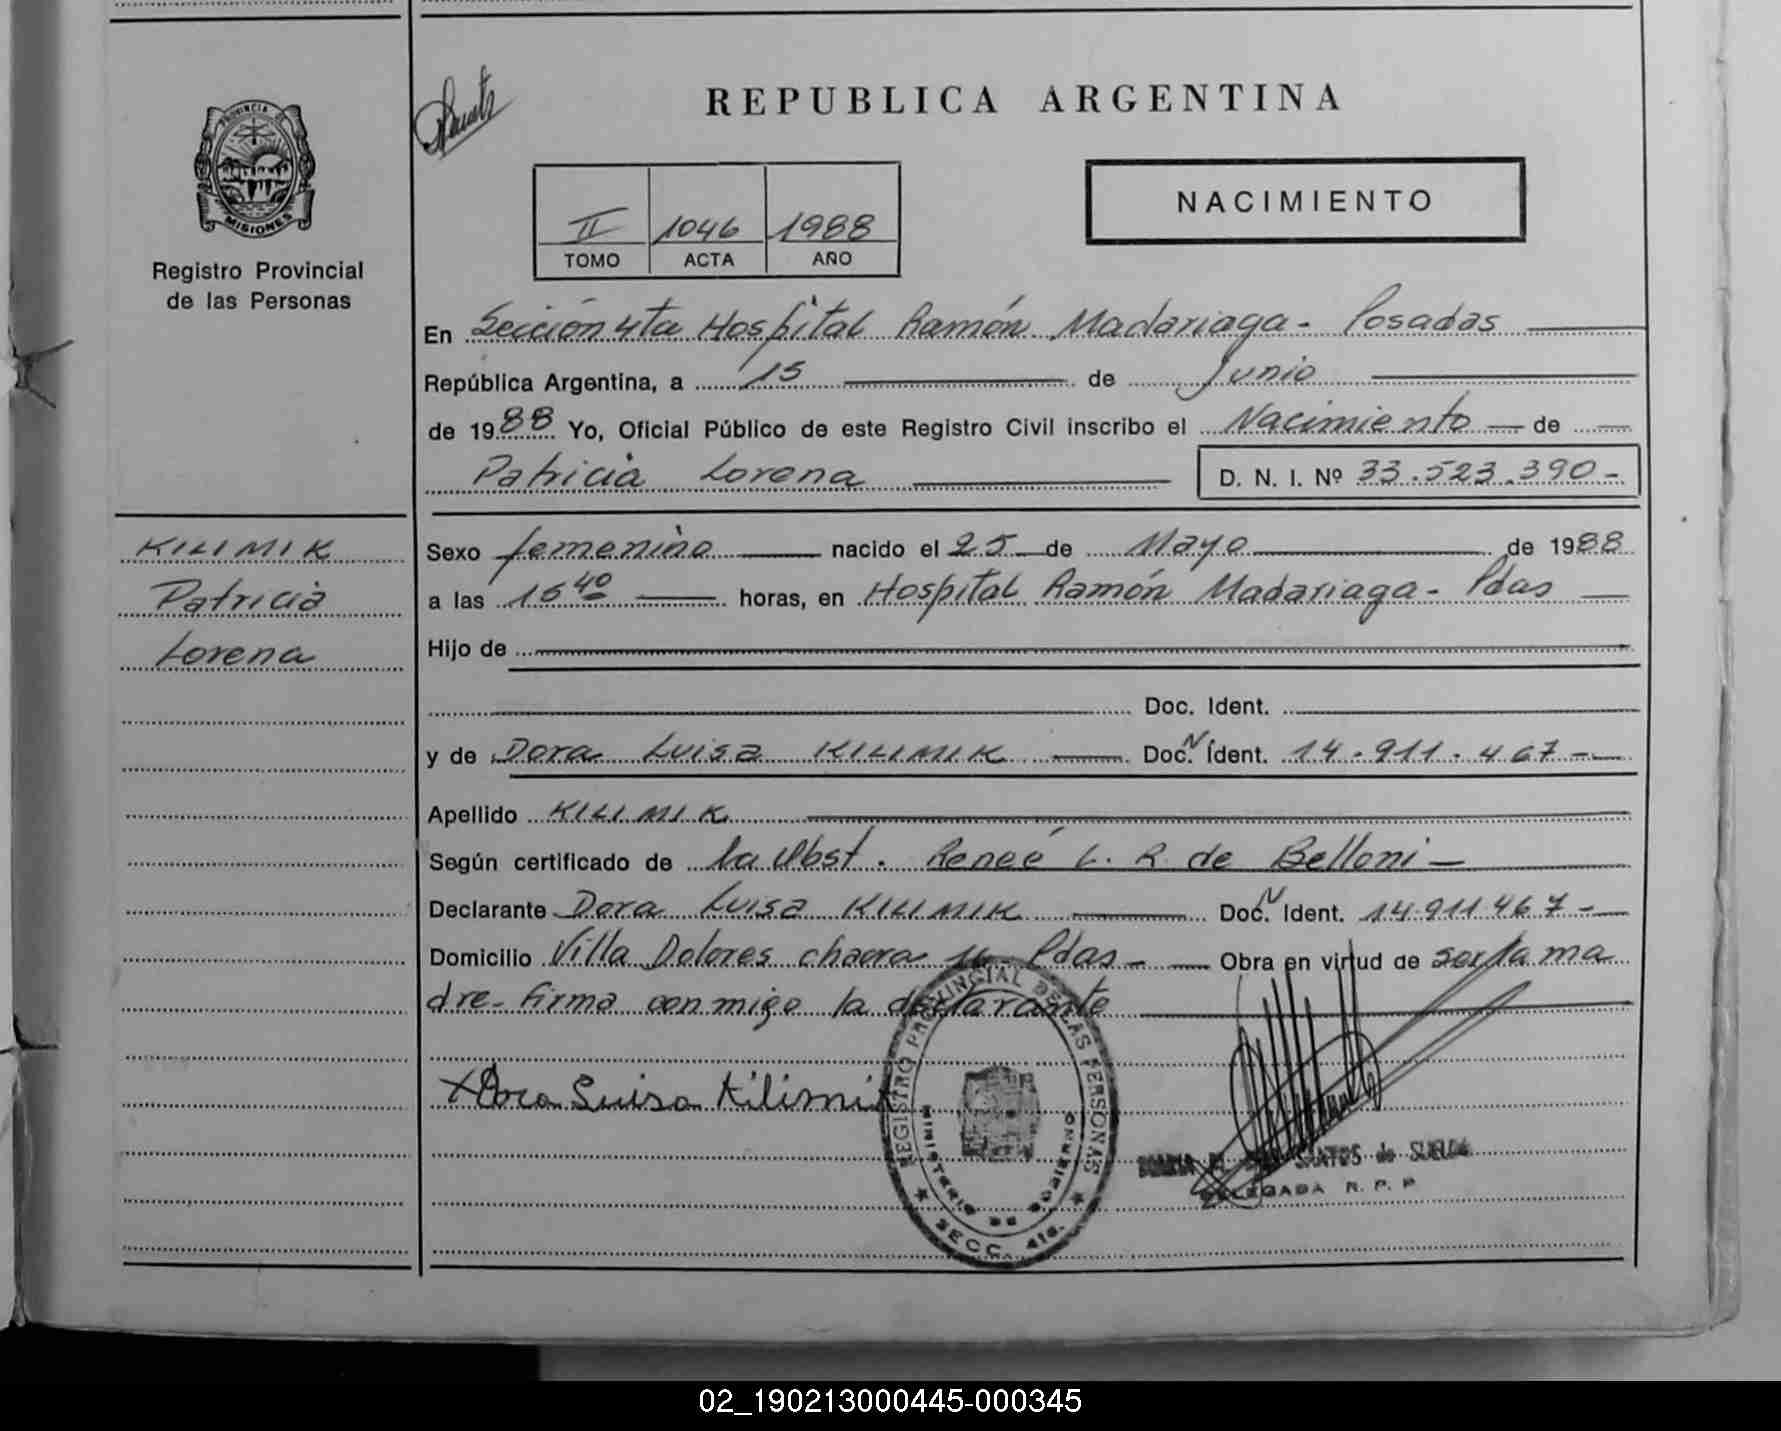 PROVINCIA DE
MISIONES
Registro Provincial
de las Personas
KILIMIK
Patricia
Lorena
REPUBLICA ARGENTINA
NACIMIENTO
II 1046 1988
TOMO ACTA AÑO
En Sección 4ta Hospital Ramón Madariaga - Posadas
República Argentina, a 15 de Junio
de 1988 Yo, Oficial Público de este Registro Civil inscribo el Nacimiento de
Patricia Lorena D. N. I. Nº 33.523.390-
Sexo femenino nacido el 25 de Mayo de 1988
a las 16 40 horas, en Hospital Ramón Madariaga - Pdas
Hijo de
Doc. Ident.
y de Dora Luisa KILIMIK Doc. N Ident. 14.911.467-
Apellido KILIMIK
Según certificado de la Obst. Reneé L. R. de Belloni
Declarante Dora Luisa KILIMIK Doc. N Ident. 14.911467-
Domicilio Villa Dolores chacra Pdas - Obra en virtud de ser la ma
dre- firma conmigo la declarante
X Dora Luisa Kilimik
REGISTRO PROVINCIAL DE LAS PERSONAS
MINISTERIO DE GOBIERNO
SECC. 4ta.
SANTOS de
DELEGADA R. P. P.
02_190213000445-000345